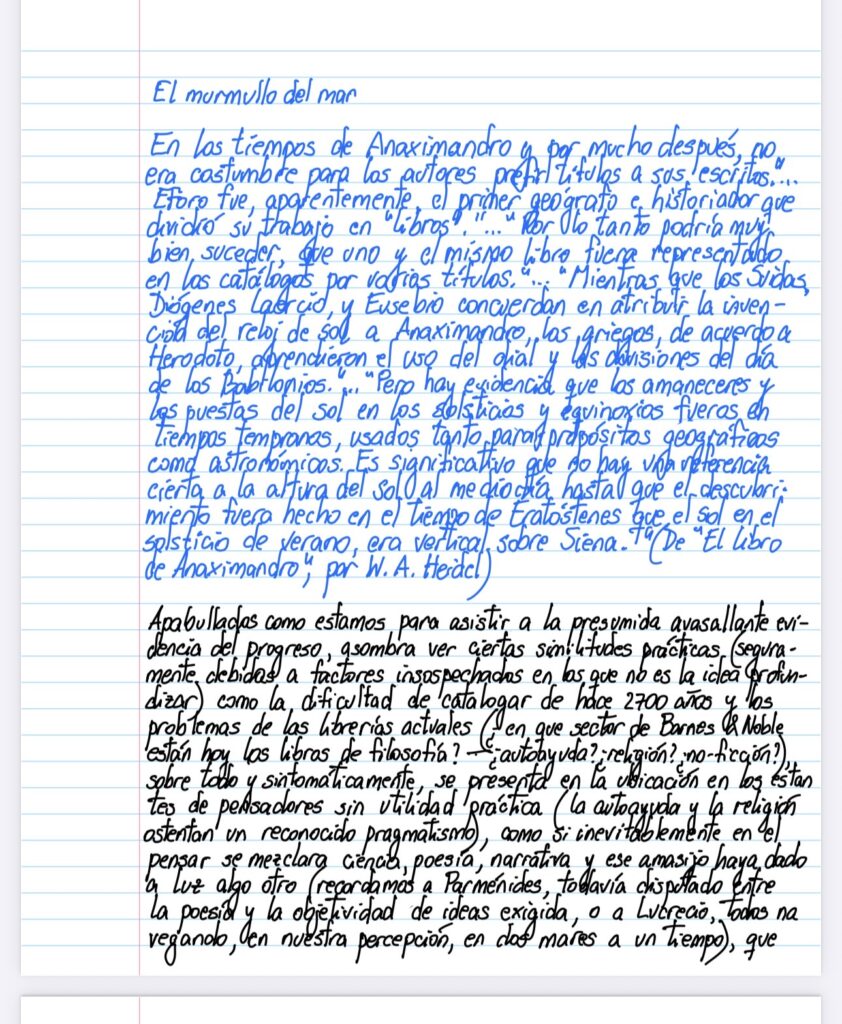 El murmullo del mar
En los tiempos de Anaximandro y por mucho después, no
era costumbre para los autores prefijr títulos a sus escritos."...
Eforo fue, aparentemente, el primer geógrafo e historiador que
dividió su trabajo en "libros"."..." Por lo tanto podría muy
bien suceder, que uno y el mismo libro fuera representado
en los catálogos por varios títulos."..."Mientras que los Suidas,
Diógenes Laercio, y Eusebio concuerdan en atribuir la inven-
ción del reloj de sol a Anaximandro, los griegos, de acuerdo a
Herodoto, aprendieron el uso del dial y las divisiones del día
de los Babilonios."..."Pero hay evidencia que los amaneceres y
las puestas del sol en los solsticios y equinoxios fueras en
tiempos tempranos, usados tanto para propósitos geográficos
como astronómicos. Es significativo que no hay una referencia
cierta a la altura del sol al mediodía hasta que el descubri-
miento fuera hecho en el tiempo de Eratóstenes que el sol en el
solsticio de verano, era vertical sobre Siena." (De "El libro
de Anaximandro", por W. A. Heidel)
Apabullados como estamos para asistir a la presumida avasallante evi-
dencia del progreso, asombra ver ciertas similitudes prácticas (segura-
mente debidas a factores insospechados en los que no es la idea profun-
dizar) como la dificultad de catalogar de hace 2700 años y los
problemas de las librerías actuales (¿en que sector de Barnes & Noble
están hoy los libros de filosofía? -¿autoayuda?¿religión?¿no-ficción?),
sobre todo y sintomáticamente, se presenta en la ubicación en los estan
tes de pensadores sin utilidad práctica (la autoayuda y la religión
astentan un reconocido pragmatismo), como si inevitablemente en el
pensar se mezclara ciencia, poesía, narrativa y ese amasijo haya dado
a luz algo otro (recordamos a Parménides, todavía disputado entre
la poesía y la objetividad de ideas exigida, o a Lucrecio, todos na
vegando, en nuestra percepción, en dos mares a un tiempo), que